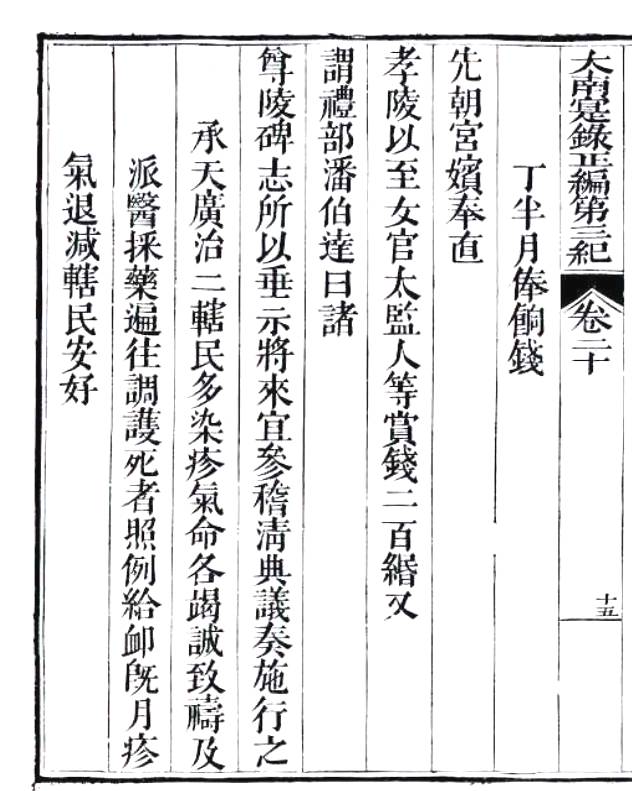 大南寔錄正編第三紀 卷二十 十五
丁半月俸餉錢
先朝宮嬪奉直
孝陵以至女官太監人等賞錢二百緡又
謂禮部潘伯達曰諸
尊陵碑志所以垂示將來宜參稽清典議奏施行之
承天廣治二轄民多染疹氣命各竭誠致禱及
派醫採藥遍往調護死者照例給卹旣月疹
氣退減轄民安好